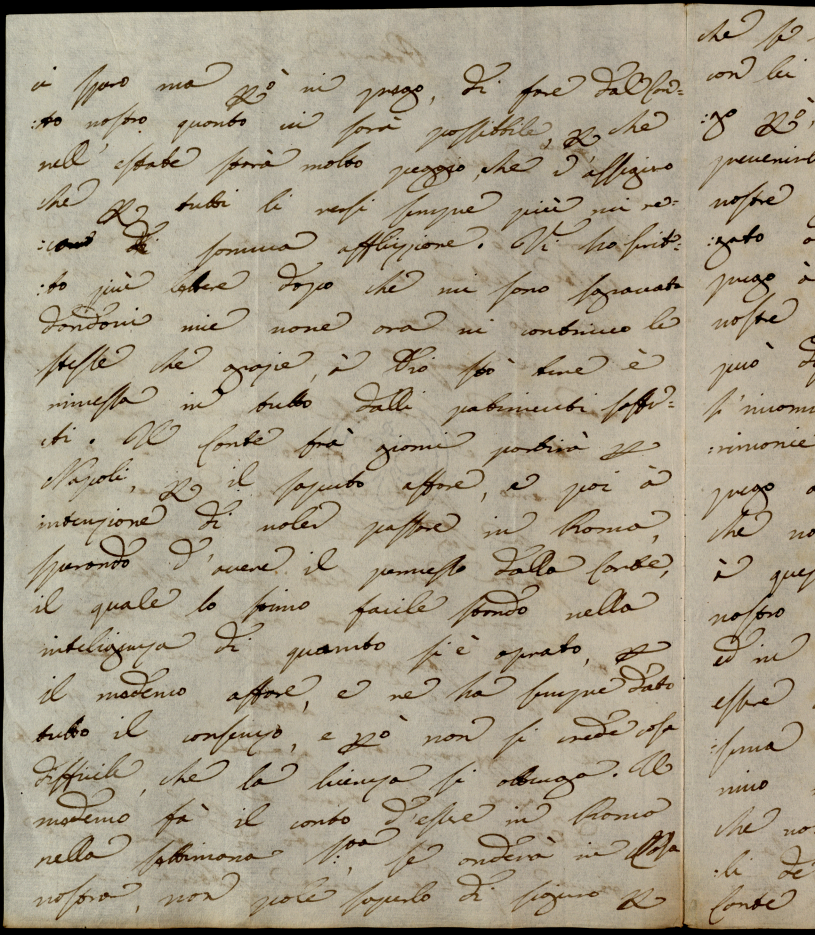 ci spero ma però vi prego, di fare dal Con=
:to nostro quanto vi sarà possibbile, per che
nell' estate sarà molto peggio, che d'affigiro
che per tutti li versi sempre più mi re=
di somma afflizzione. Vi ho scrit=
:to più lettere dopo che mi sono sgravata
dandovi mie nove ora vi continuo le
stesse che grazie, à Dio stò bene è
rimessa in tutto dalli patimenti soffer=
:ti. Il Conte frà giorni partirà per
Napoli, per il saputo affare, e poi à
intenzione di voler passare in Roma,
sperando d'avere il permesso dalla Corte,
il quale lo stimo facile stando nella
inteligenza di quanto si è oprato, per
il medemo affare, e ne ha sempre dato
tutto il consenzo, e però non si crede cosa
difficile, che la licenza si ottenga. Il
medemo fà il conto d'essere in Roma
nella settimana Sta, se anderà in Casa
nostra, non potè saperlo di siguro per
che se
con lei
:go però,
prevenirl
nostre
:gato a
prego à
nostre
può di
s'incom
:rimonie
prego a
che no
à ques
nostro
ed in
essere
:sima
mio
che no
:li de
Conte